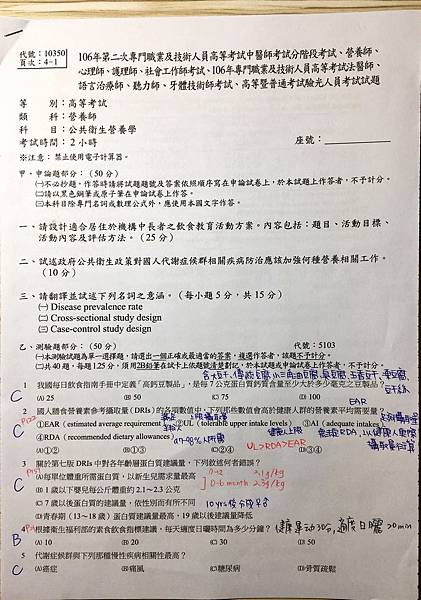 代號：10350
頁次：4-1
106年第二次專門職業及技術人員高等考試中醫師考試分階段考試、營養師、
心理師、護理師、社會工作師考試、106年專門職業及技術人員高等考試法醫師、
語言治療師、聽力師、牙體技術師考試、高等暨普通考試驗光人員考試試題
等 別：高等考試
類 科：營養師
科 目：公共衛生營養學
考試時間：2 小時
座號：
※注意：禁止使用電子計算器。
甲、申論題部分：（50 分）
㈠不必抄題，作答時請將試題題號及答案依照順序寫在申論試卷上，於本試題上作答者，不予計分。
㈡請以黑色鋼筆或原子筆在申論試卷上作答。
㈢本科目除專門名詞或數理公式外，應使用本國文字作答。
一、請設計適合居住於機構中長者之飲食教育活動方案。內容包括：題目、活動目標、
活動內容及評估方法。（25 分）
二、試述政府公共衛生政策對國人代謝症候群相關疾病防治應該加強何種營養相關工作。
（10 分）
三、請翻譯並試述下列名詞之意涵。（每小題 5 分，共 15 分）
㈠Disease prevalence rate
㈡Cross-sectional study design
㈢Case-control study design
乙、測驗題部分：（50 分）
代號：5103
㈠本測驗試題為單一選擇題，請選出一個正確或最適當的答案，複選作答者，該題不予計分。
㈡共 40 題，每題 1.25 分，須用2B鉛筆在試卡上依題號清楚劃記，於本試題或申論試卷上作答者，不予計分。
C 1 我國每日飲食指南手冊中定義「高鈣豆製品」，是每 7 公克蛋白質鈣質含量至少大於多少毫克之豆製品？
(A)25 (B)50 (C)75 (D)100
EAR
C 2 國人膳食營養素參考攝取量（DRIs）的各項數值中，下列那些數值會高於健康人群的營養素平均需要量？
①EAR（estimated average requirement） ②UL（tolerable upper intake levels） ③AI（adequate intakes）
④RDA（recommended dietary allowances）
97-98%
(A)①② (B)①③ (C)②④ (D)③④
UL>RDA>EAR
C 3 關於第七版 DRIs 中對各年齡層蛋白質建議量，下列敘述何者錯誤？
(A)每單位體重所需蛋白質，以新生兒需求量最高
(B) 1 歲以下嬰兒每公斤體重約 2.1～2.3 公克
0-6 month 2.3g/kg
(C) 7 歲以後蛋白質的建議量，依性別而有所不同
(D)青春期（13～18 歲）蛋白質建議量最高，19 歲以後建議量降低
B 4 根據衛生福利部的素食飲食指標建議，每天適度日曬時間為多少分鐘？
(A) 10 (B) 20 (C) 30 (D) 50
C 5 代謝症候群與下列那種慢性疾病相關性最高？
(A)癌症 (B)痛風 (C)糖尿病 (D)骨質疏鬆